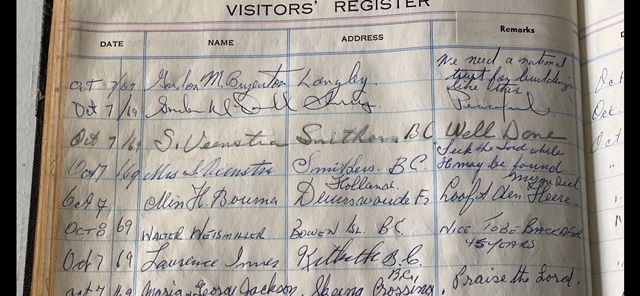 VISITORS' REGISTER
DATE NAME ADDRESS Remarks
We need a national
trust for buildings
like this.
Oct 7/69 Gordon M Bryenton Langley.
Oct 7/69 Peaceful.
Oct 7/69 S. Veenstra Smithers BC Well Done
"Seek the Lord while
Oct 7 /69 Mrs S Veenstra Smithers. B.C. He may be found
Holland. mijn ziel
Oct 7 Miss H. Bouma Looft den Heere.
Oct 8 69 WALTER WEISMILLER BOWEN Isl. B.C. NICE TO BE BACK AFTER
45 YEARS
Oct 7 69 Lawrence Innes B.C.
B.C.,
Oct 7 69 Maria George Jackson, Skeena Crossing, Praise the Lord.